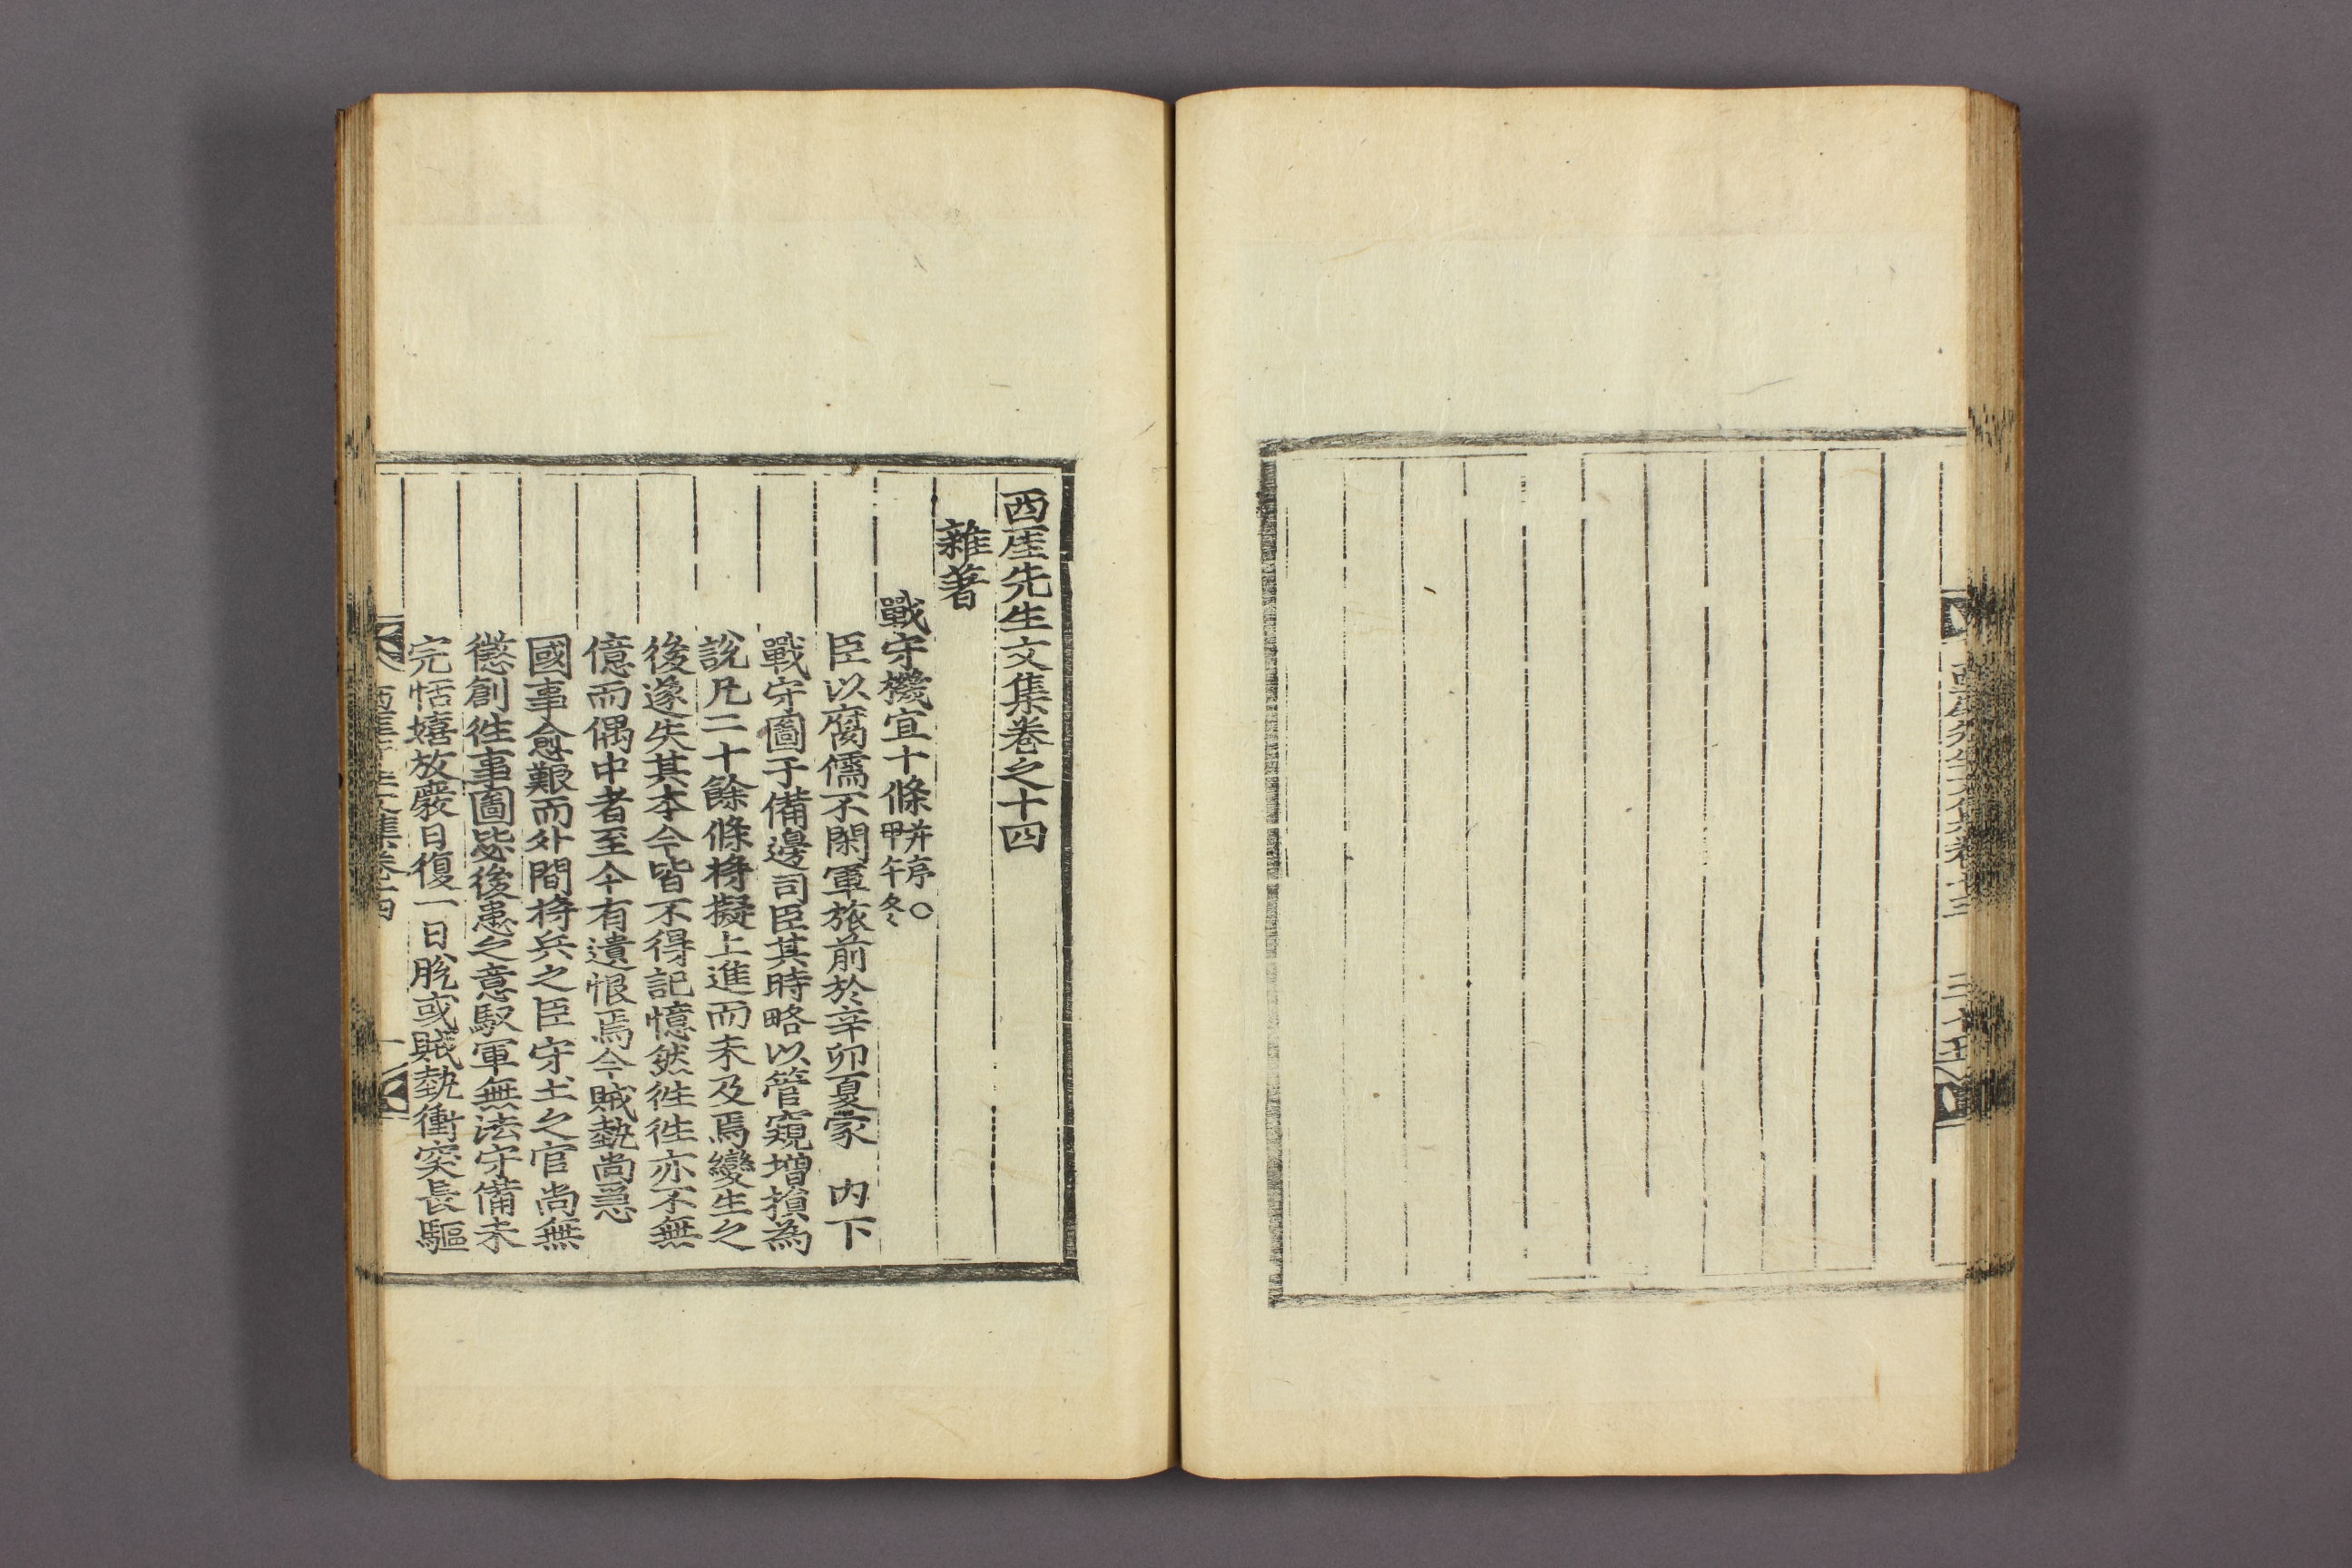 西厓先生文集卷之十四
雜著
戰守機宜十條 幷序○甲午冬
臣以腐儒不閑軍旅前於辛卯夏蒙 內下
戰守圖于備邊司臣其時略以管窺增損為
說凡二十餘條將擬上進而未及焉變生之
後遂失其本今皆不得記憶然徃徃亦不無
億而偶中者至今有遺恨焉今賊勢尚急
國事愈艱而外間將兵之臣守土之官尚無
懲創徃事啚毖後患之意馭軍無法守備未
完恬嬉放嚴日復一日脫或賊勢衝突長驅
西厓先生文集卷十四 一